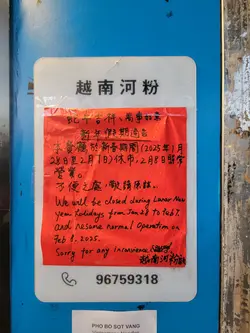 越南河粉
蛇年吉祥、萬事如意
新年假期通告
本餐檔於新春期間(2025年1月
28日至2月7日)休市，2月8日照常
營業。
不便之處，敬請原諒。
We will be closed during Lunar New
Year holidays from Jan 28 to Feb 7.
and resume normal operation on
Feb 8, 2025.
Sorry for any inconvience
越南河粉
96759318
PHO BO SOT VANG